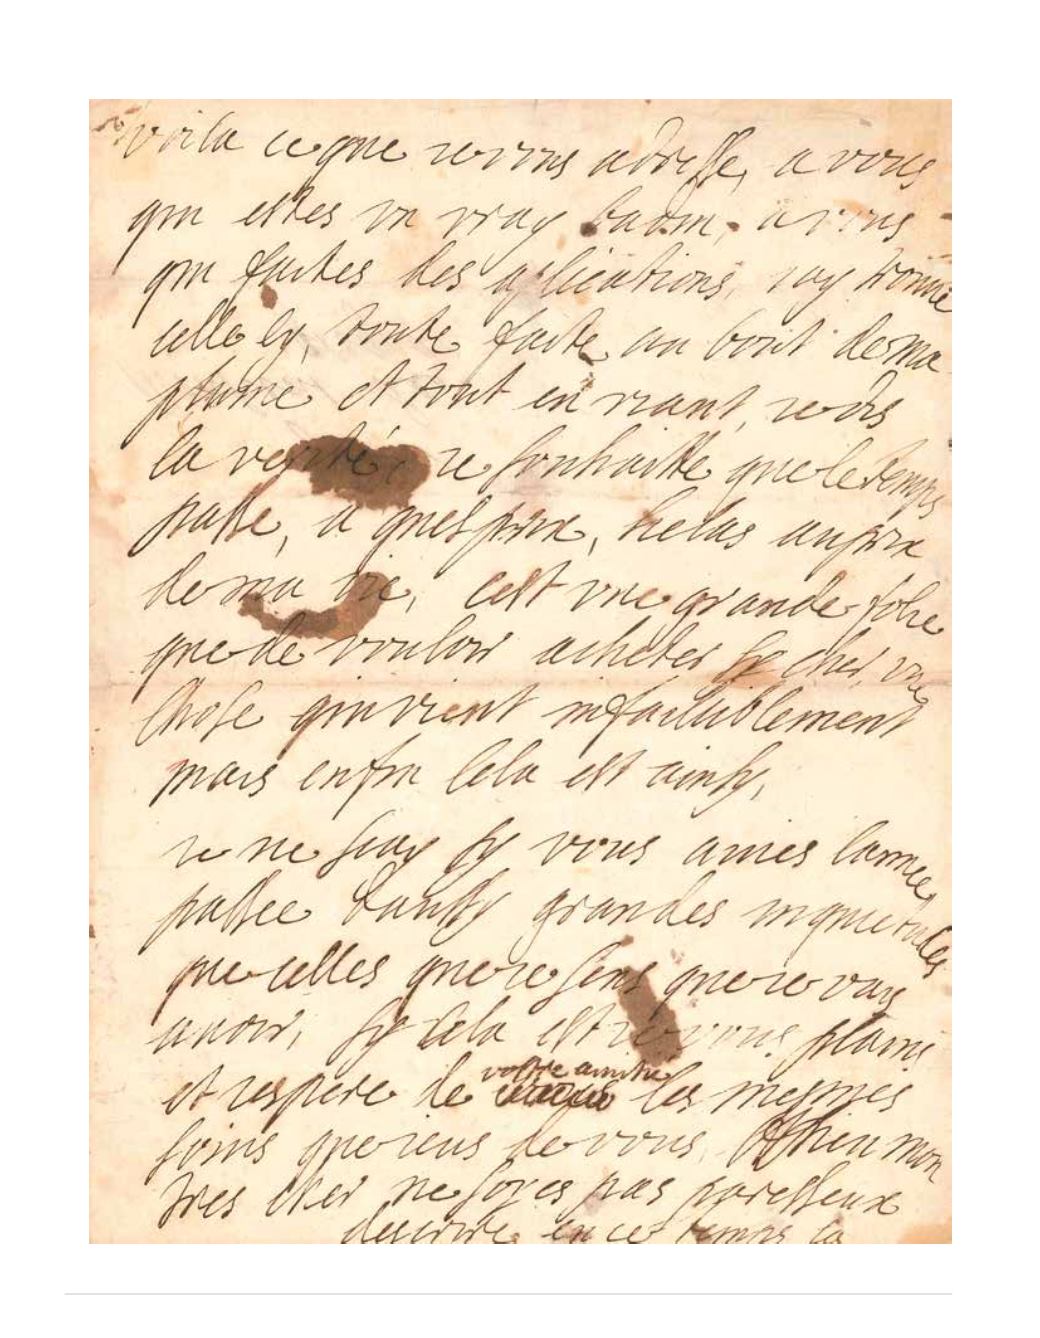 voila ce que ie vous adresse, a vous
qui estes vn vray badin, a vous
qui faites des aplications, iay trouué
celle cy, toute faite au bout de ma
plume et tout en riant, ie dis
la verité, ie souhaitte que le temps
passe, a quel prix, helas au prix
de ma vie, cest vne grande folie
que de vouloir acheter sy cher, vne
chose qui vient infailliblement
mais enfin cela est ainsy,
ie ne scay sy vous auies lannee
passee daussy grandes inquietudes
que celles que ie sens que ie vay
auoir, sy cela est ie vous plains
et iespere de vostre amitié les mesmes
soins que ieus de vous. Adieu mon
tres cher ne soyes pas paresseux
descrire en ce temps cy